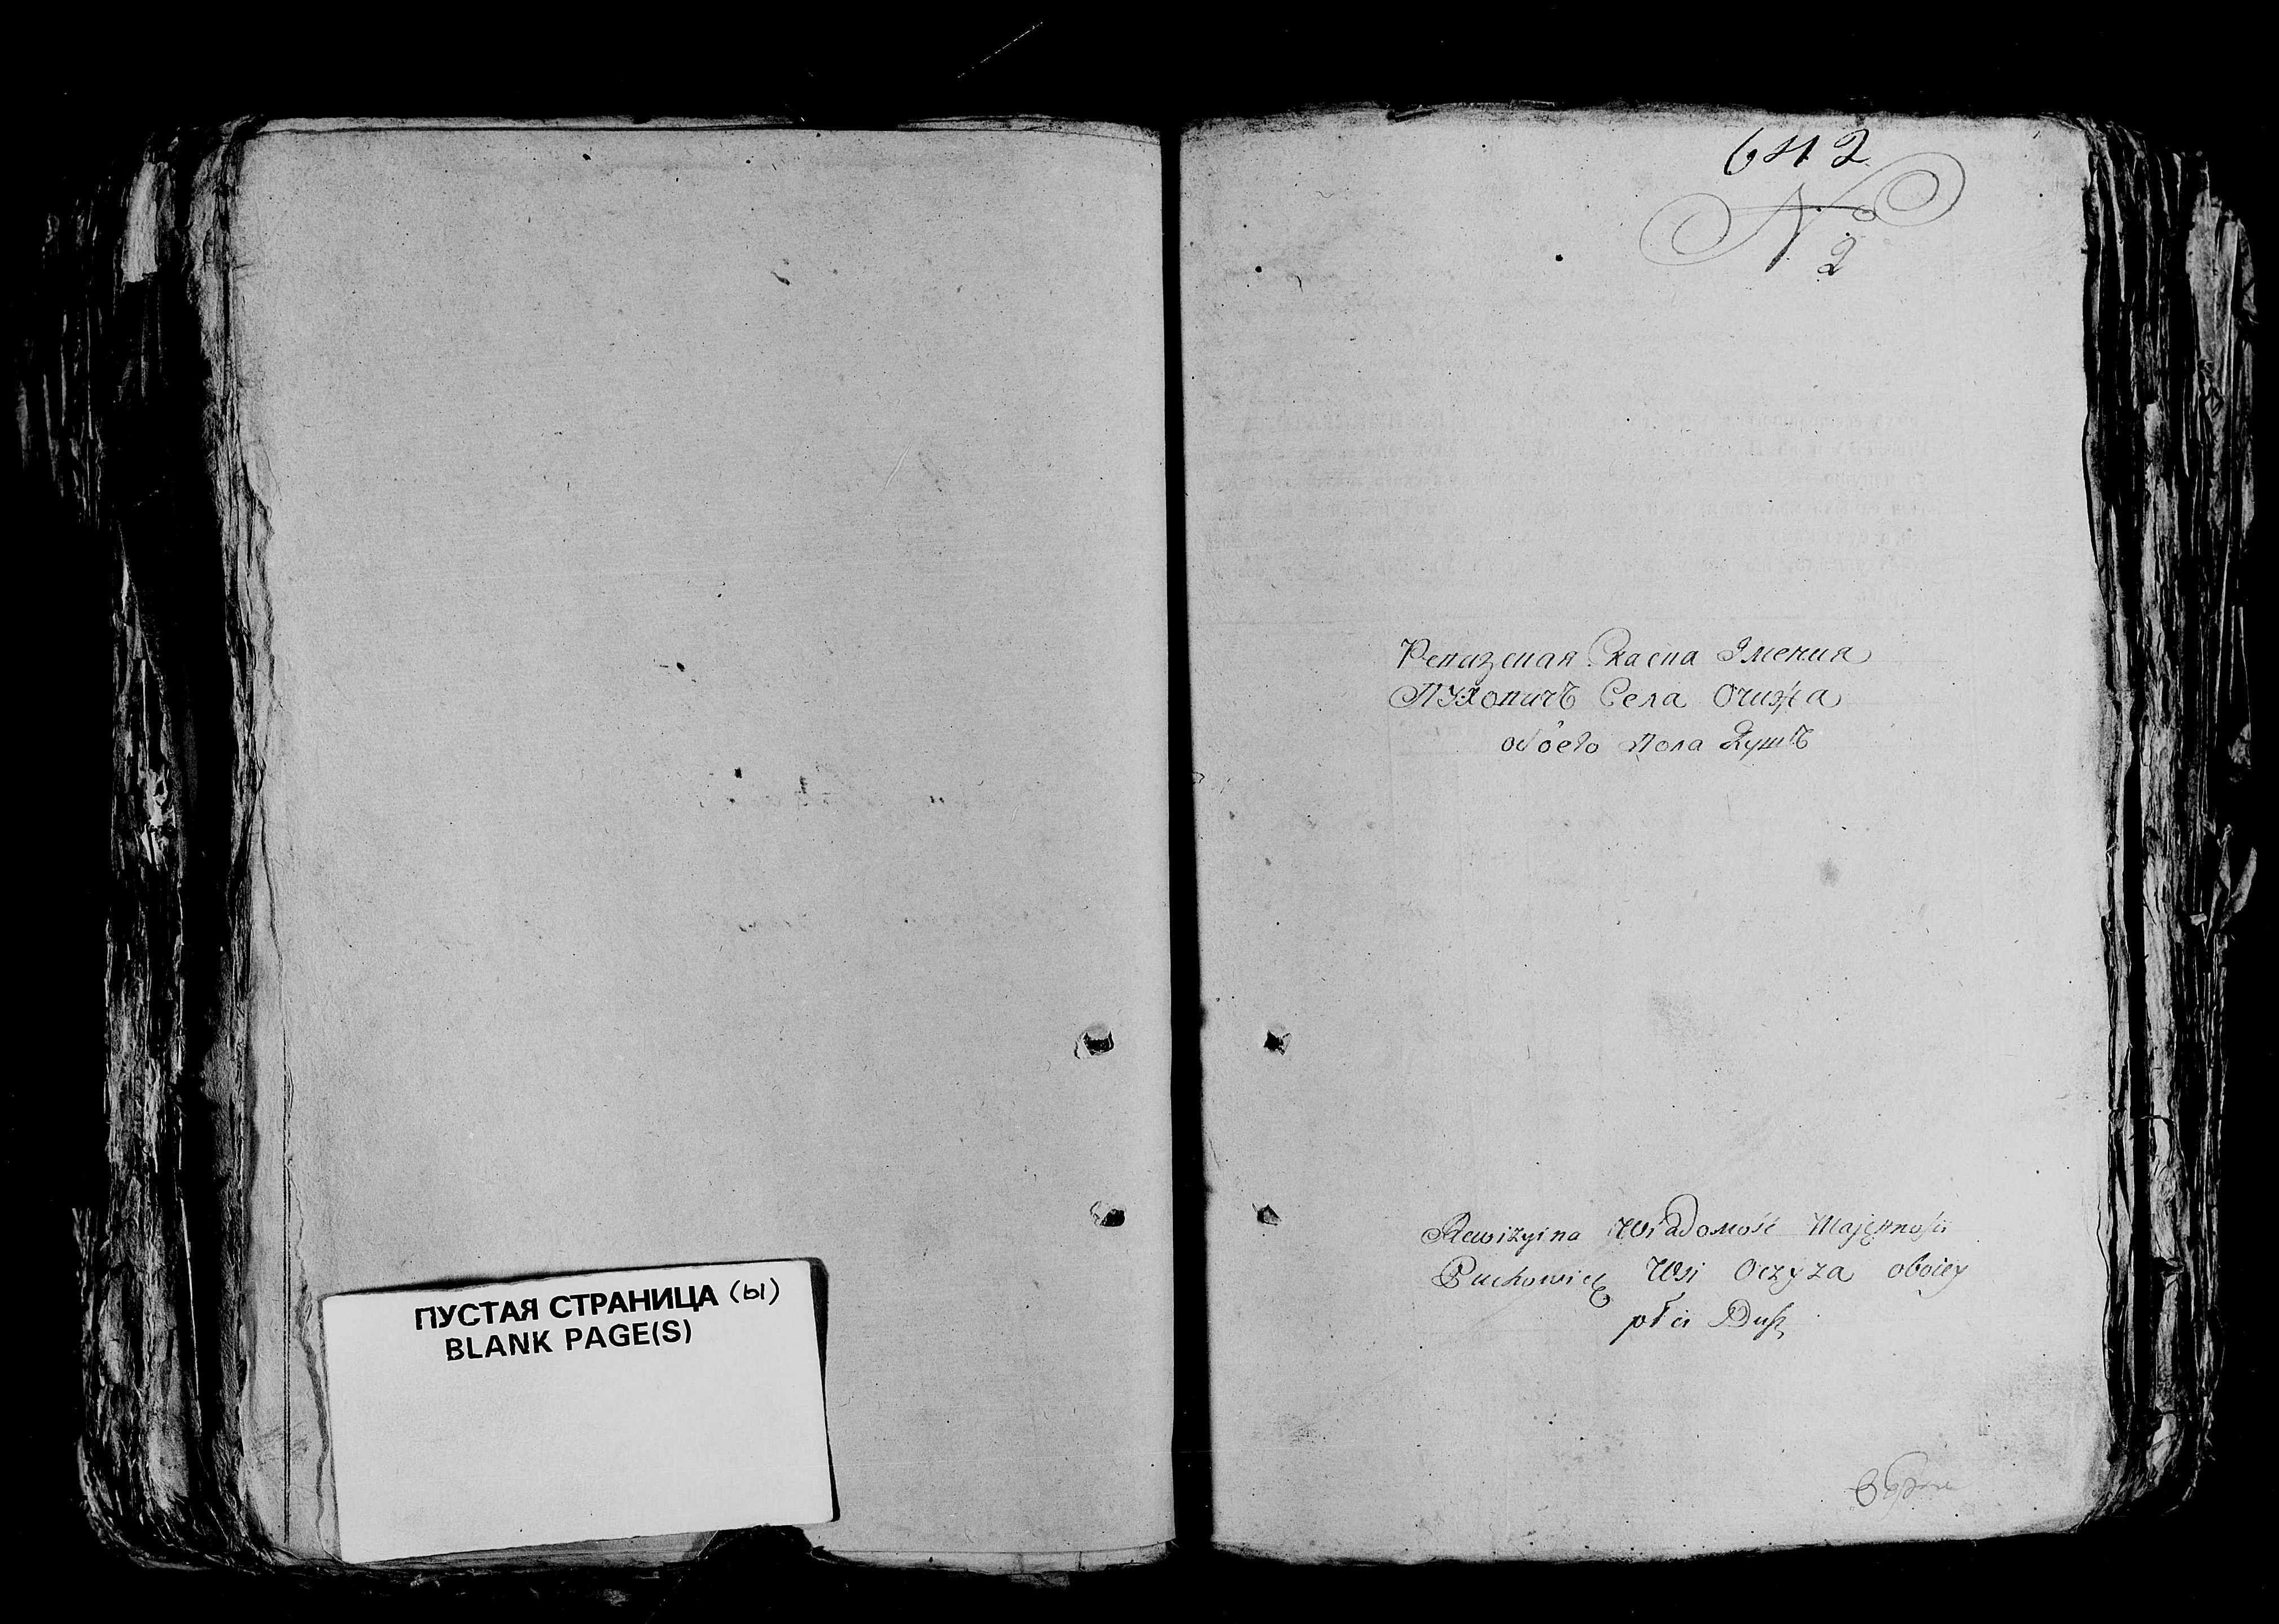 ПУСТАЯ СТРАНИЦА (Ы)
BLANK PAGE(S)
642
N 2
Ревизская Каска Имения
Пуховичъ Села Очижа
обоего Пола Душъ
Rewizyina Wiadomość Maiętności
Puchowicz Wsi Oczyża oboiey
płci Dusz